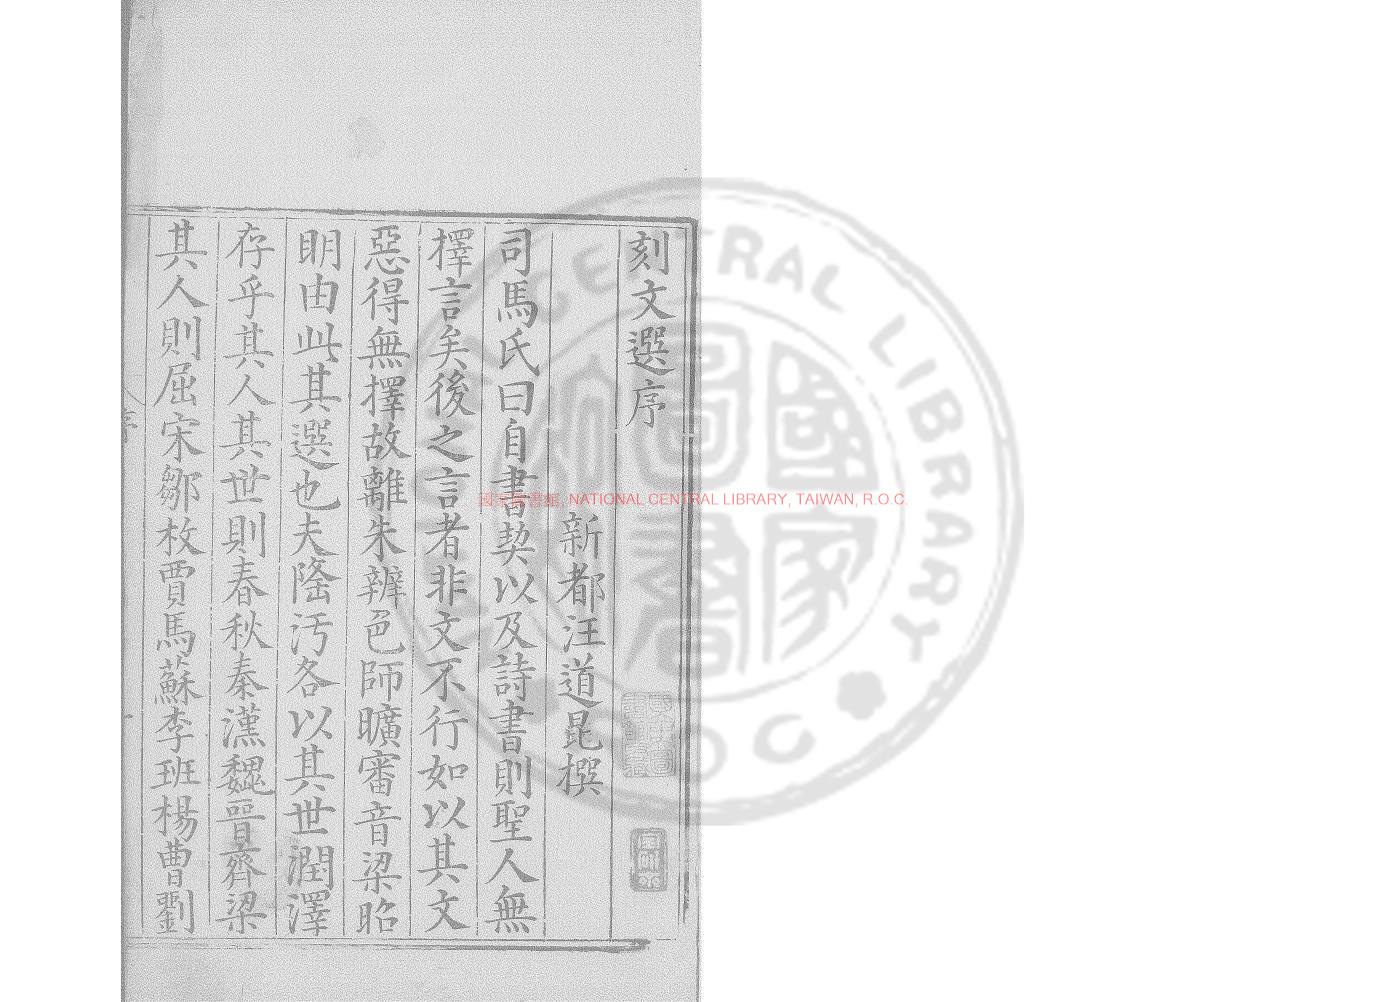 刻文選序
新都汪道昆撰
司馬氏曰自書契以及詩書則聖人無
擇言矣後之言者非文不行如以其文
惡得無擇故離朱辨色師曠審音梁昭
明由此其選也夫隆汚各以其世潤澤
存乎其人其世則春秋秦漢魏晉齊梁
其人則屈宋鄒枚賈馬蘇李班楊曹劉
序
國家圖書館, NATIONAL CENTRAL LIBRARY, TAIWAN, R.O.C.
CENTRAL LIBRARY
國家圖書館